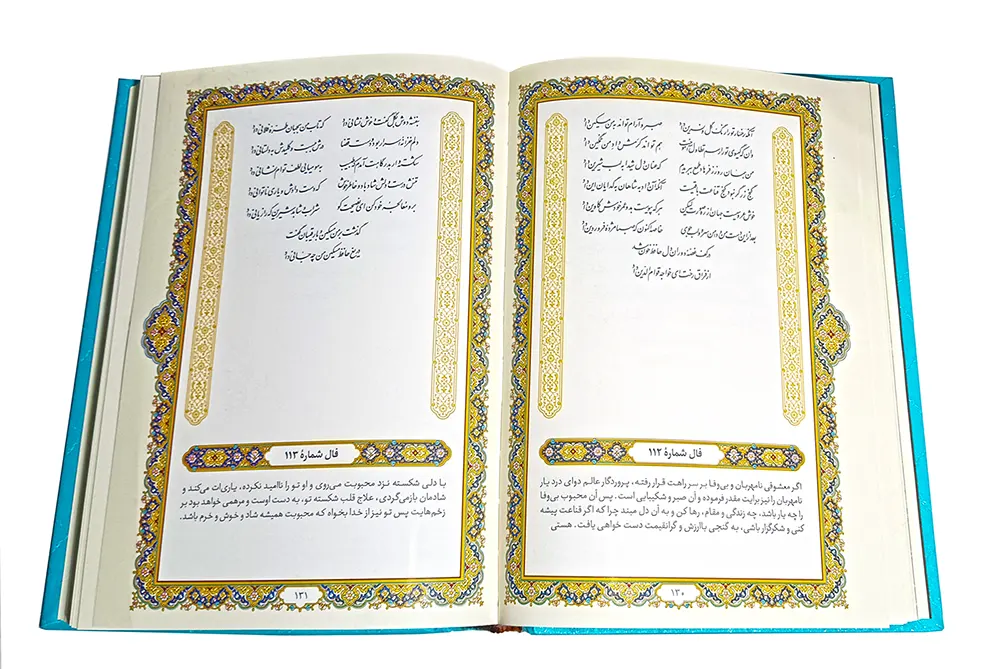 آنکه رخسار تو را رنگ گل و نسرین داد صبر و آرام تواند به من مسکین داد
وآنکه گیسوی تو را رسم تطاول آموخت هم تواند کرمش داد من غمگین داد
من همان روز ز فرهاد طمع ببریدم که عنان دل شیدا به لب شیرین داد
گنج زر گر نبود کنج قناعت باقیست آنکه آن داد به شاهان به گدایان این داد
خوش عروسیست جهان از ره صورت لیکن هر که پیوست بدو عمر خودش کاوین داد
بعد از این دست من و دامن سرو و لب جوی خاصه اکنون که صبا مژده فروردین داد
در کف غصه دوران دل حافظ خون شد
از فراق رخت ای خواجه قوام الدین داد
فال شمارهٔ ۱۱۲
اگر معشوقی نامهربان و بی‌وفا بر سر راهت قرار رفته، پروردگار عالم دوای درد یار
نامهربان را نیز برایت مقدر فرموده و آن صبر و شکیبایی است. پس آن محبوب بی‌وفا
را چه یار باشد، چه زندگی و مقام، رها کن و به آن دل مبند چرا که اگر قناعت پیشه
کنی و شکرگزار باشی، به گنجی باارزش و گرانقیمت دست خواهی یافت. هستی
۱۳۰
بنفشه دوش به گل گفت و خوش نشانی داد که تاب من به جهان طره فلانی داد
دلم خزانه اسرار بود و دست قضا درش ببست و کلیدش به دلستانی داد
شکسته وار به درگاهت آمدم که طبیب به مومیایی لطف توام نشانی داد
تنش درست و دلش شاد باد و خاطر خوش که دست دادش و یاری ناتوانی داد
برو معالجه خود کن ای نصیحت گو شراب و شاهد شیرین که را زیانی داد
گذشت بر من مسکین و با رقیبان گفت
دریغ حافظ مسکین من چه جانی داد
فال شمارهٔ ۱۱۳
با دلی شکسته نزد محبوبت می‌روی و او تو را ناامید نکرده، یاری‌ات می‌کند و
شادمان بازمی‌گردی، علاج قلب شکسته تو، به دست اوست و مرهمی خواهد بود بر
زخم‌هایت پس تو نیز از خدا بخواه که محبوبت همیشه شاد و خوش و خرم باشد.
۱۳۱